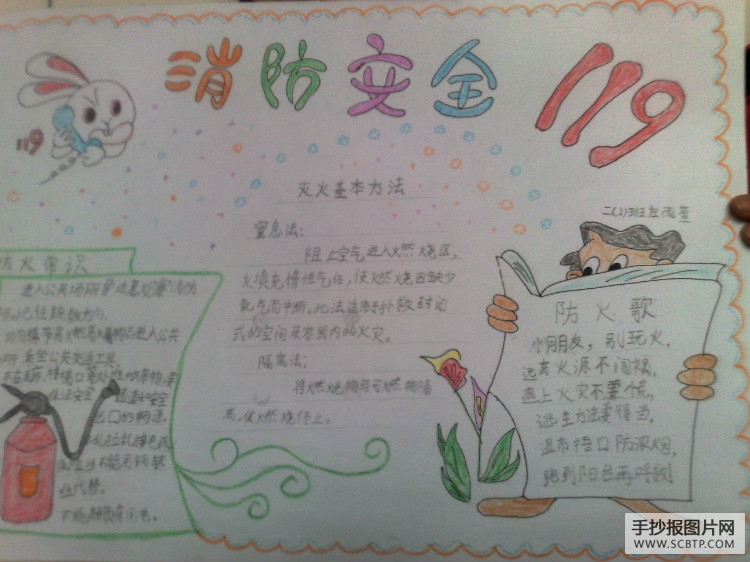 消防安全 119
119
灭火基本方法
窒息法:
阻止空气进入燃烧区,
火填充惰性气体,使燃烧因缺少
氧气而中断。此法适用于扑救封闭
式的空间及容器内的火灾。
隔离法:
将燃烧物与可燃物隔
离,使燃烧停止。
防火常识
进入公共场所要注意观察消防
记住疏散方向。
勿携带易燃易爆物品进入公共
所 乘坐公共交通工具。
保证安全
出口的畅通。
不能用铜
丝代替。
不能超负荷用电。
防火歌
小朋友,别玩火,
远离火源不闯祸,
遇上火灾不要慌,
逃生方法要懂当,
湿布捂口防浓烟,
跑到阳台再呼救!
手抄报图片网
WWW.SCBTP.COM